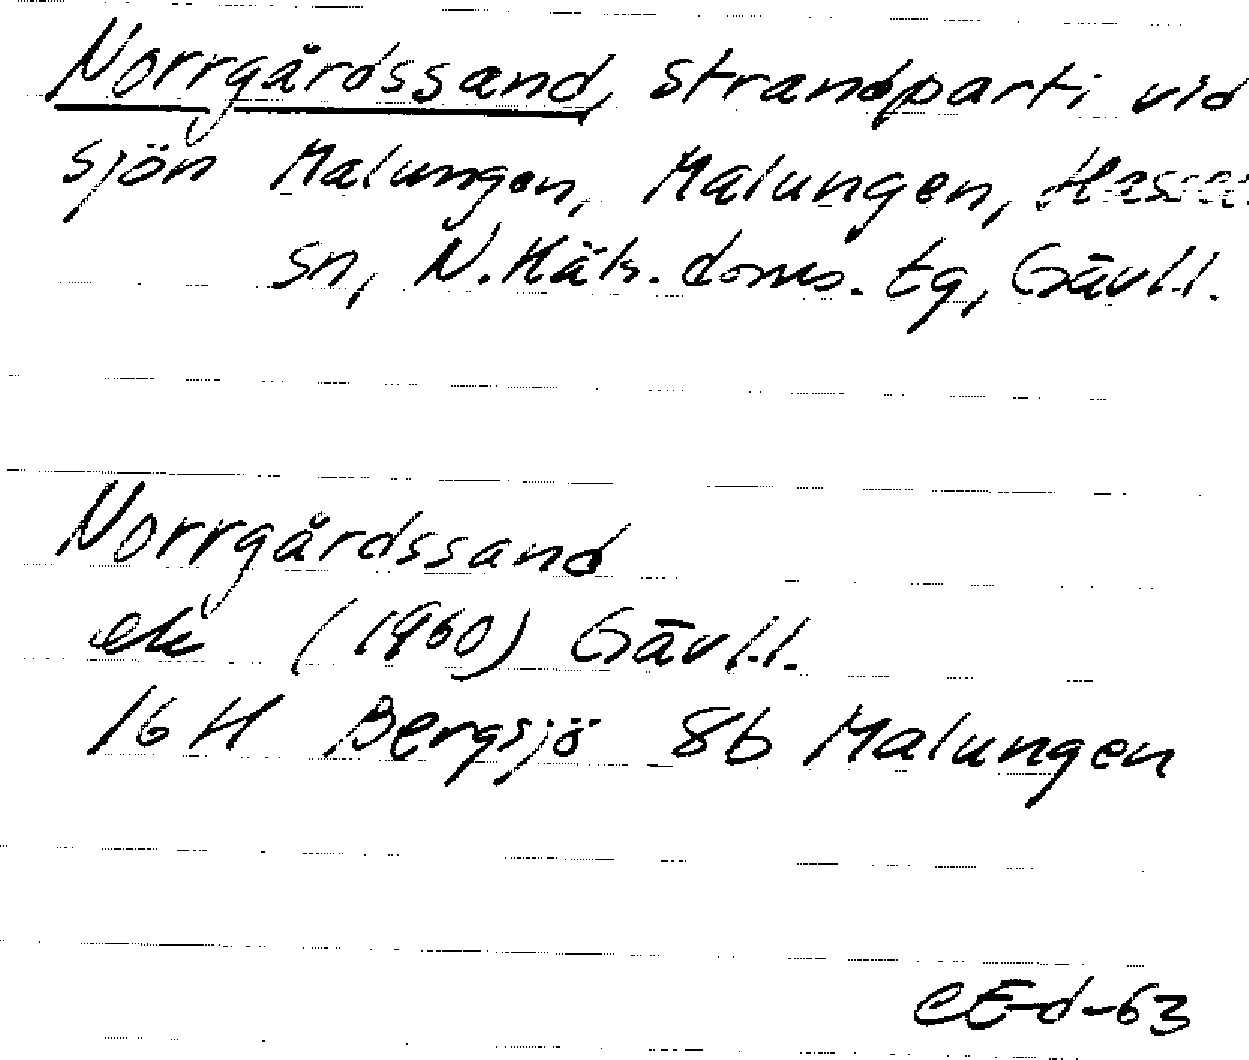 Norrgårdssand, strandparti vid
sjön Malungen, Malungen,
sn, N. Häls. doms. tg, Gävl.l.
Norrgårdssand
ek (1960) Gävl.l.
16 H Bergsjö 8b Malungen
CE-d-63